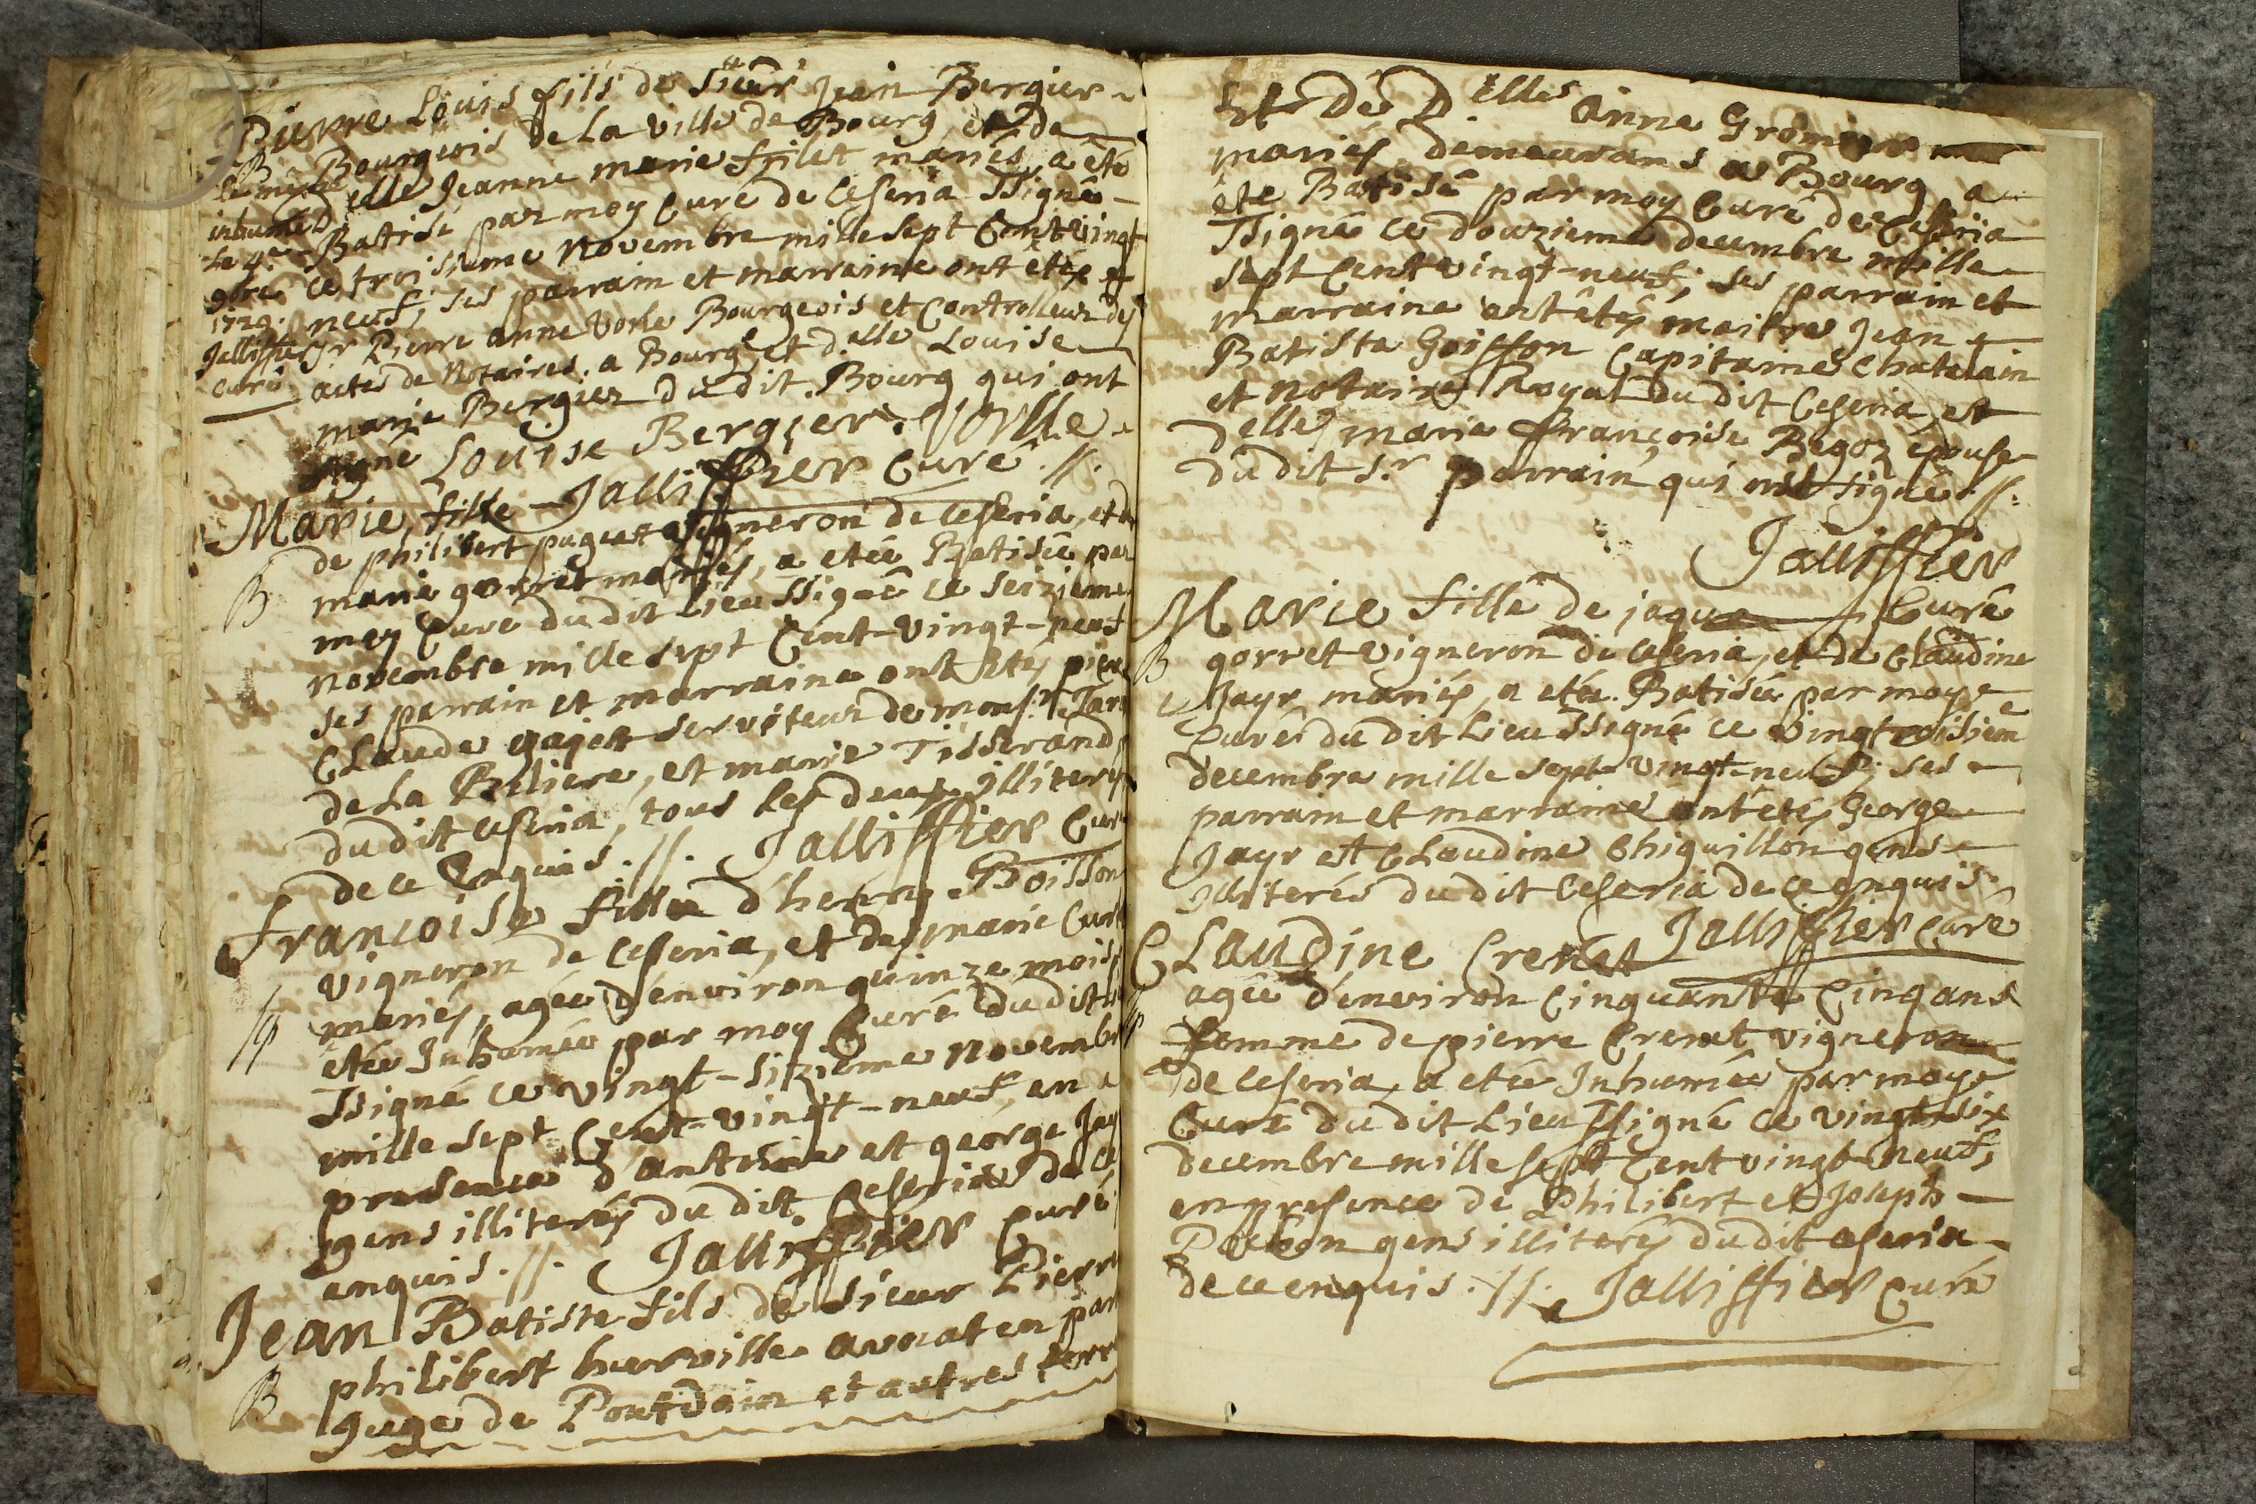 Pierre Louis fils de sieur Jean Bergier
B Bourgeois de La ville de Bourg, et de
delle Jeanne marie frilet mariés, a été
Batisé par moy Curé de Ceseria ssigné
ce troisieme novembre mille sept Cent vingt
neuf, ses parrain et marraine ont étés
sr Pierre anne Vorle Bourgeois et Controlleur des
actes de Notaires a Bourg, et delle Louise
marie Bergier du dit Bourg qui ont
signé Louise Bergier. Vorlle
inhumé
le 4e
1729.
Jalliffier
curé
Jalliffier Curé .//.
Marie, fille
de philibert paguet vigneron de Ceseria, et de
B marie gorret mariés, a etée Batisée par
moy Curé du dit Lieu ssigné ce seizieme
novembre mille sept Cent-vingt-neuf
ses parrain et marraine ont étés pierre
CLaude gajet serviteur de monsr
de La Peliere, et marie Tisserand
du dit Ceseria, tous les deux illiterés
de ce Enquis .//. Jalliffier Curé
francoise fille d'henry Boisson
vigneron de Ceseria, et de marie
mariés, agée d'environ quinze mois,
étée Inhumée par moy Curé du dit
ssigné ce vingt-sizieme novembre
mille sept Cent-vingt-neuf, en
presence d'antoine et george Jayr
gens illiterés du dit Ceseria de ce
enquis .//. Jalliffier curé
Jean Batiste fils de sieur Pierre
B philibert huerville avocat en par
juge de Pontdain et autres terr
Et de Delles anne Gromier
mariés demeurans a Bourg a
été Batisé par moy Curé de Ceseria
ssigné ce douzieme decembre mille
sept Cent vingt-neuf, ses parrain et
marraine ont étés maitre Jean
Batista Goiffon Capitaine Chatelain
et notaire Royal du dit Ceseria, et
delle marie Françoise Begoz epouse
du dit sr parrain qui ont signé .//.
Jalliffier
Curé
Marie fille de jaque
B gorret vigneron de Ceseria, et de Claudine
Jayr mariés, a etée Batisée par moy
Curé du dit Lieu ssigné ce vingtroisiem
decembre mille sept-vingt-neuf; ses
parrain et marraine ont étés George
Jayr et CLaudine Chiquillon gens
illiterés du dit Ceseria de ce enquis.
Jalliffier Curé
CLaudine Crenet
agée d'environ Cinquante Cinq ans
femme de pierre Crenet vigneron
de Ceseria, a etée Inhumée par moy
Curé du dit Lieu ssigné ce vingt-six
decembre mille sept Cent vingt-neuf,
en presence de Philibert et Joseph
gens illiterés du dit Ceseria
de ce enquis .//. Jalliffier Curé